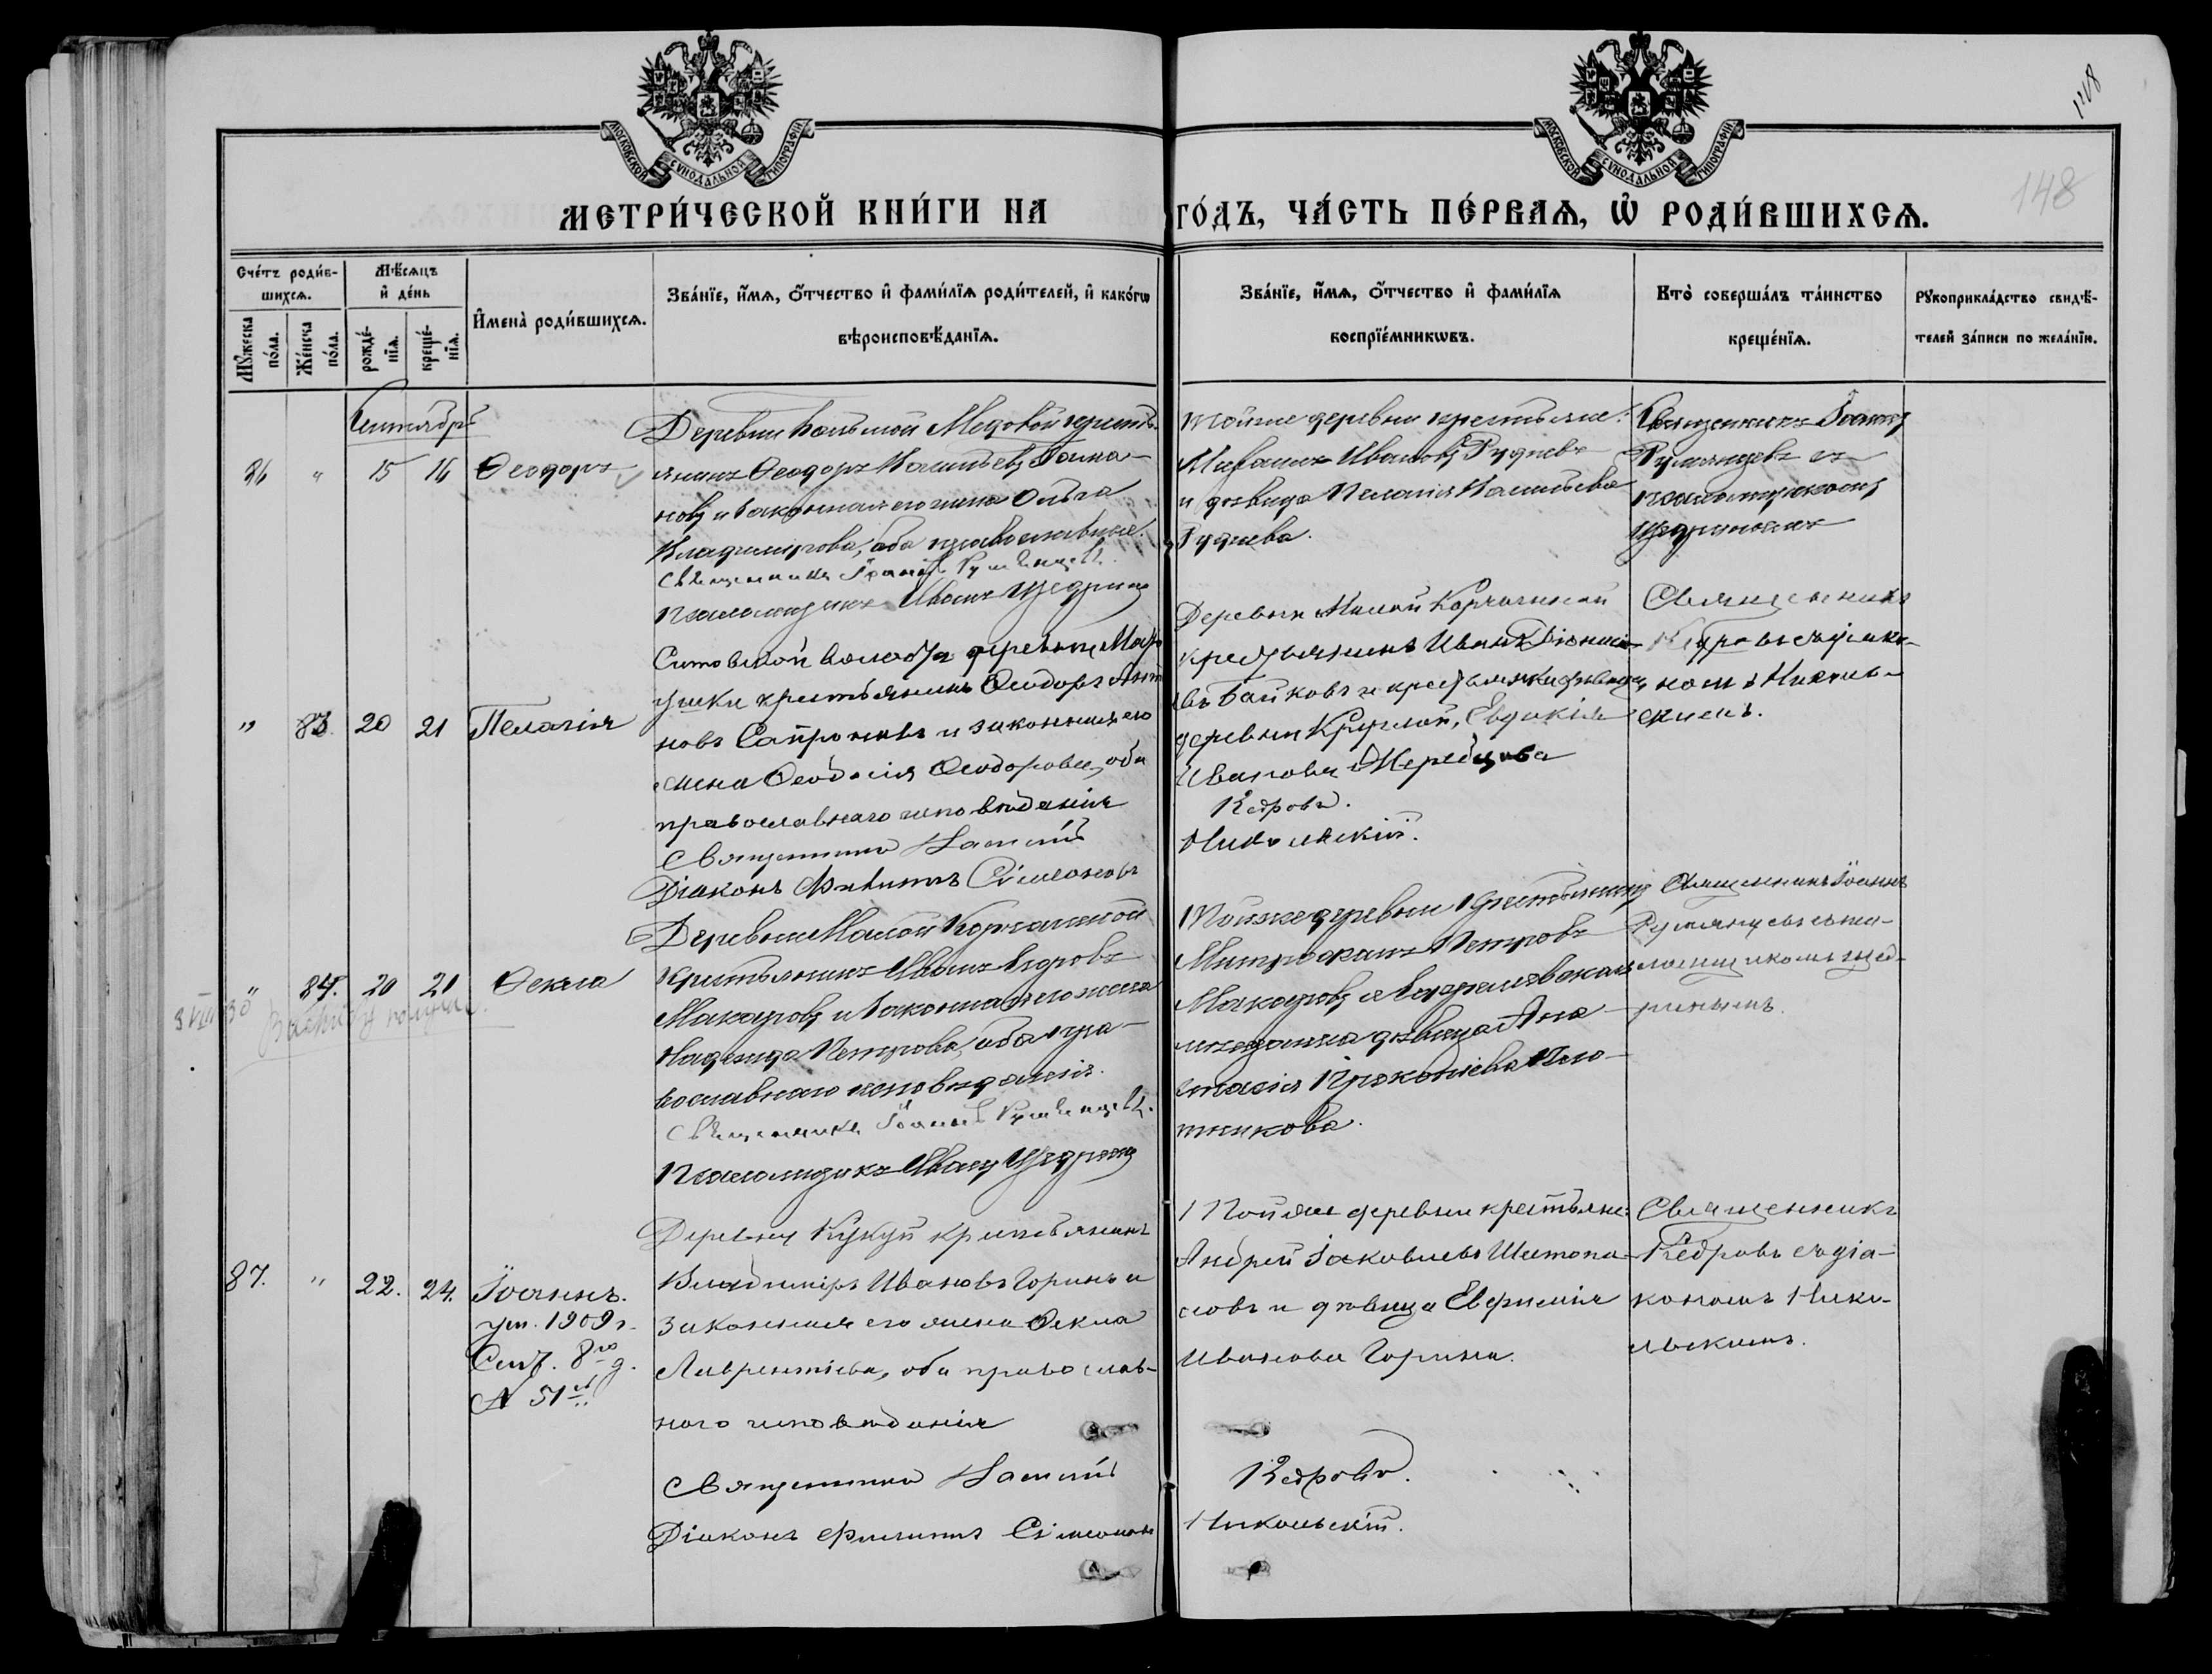 148
148
МОСКОВСКОЙ СѴНОДАЛЬНОЙ ТИПОГРАФІИ
МОСКОВСКОЙ СѴНОДАЛЬНОЙ ТИПОГРАФІИ
МЕТРИ́ЧЕСКОЙ КНИ́ГИ НА ГО́ДЪ, ЧА́СТЬ ПЕ́РВАѦ, Ѡ҆ РОДИ́ВШИХСѦ.
Сче́тъ роди́в-
шихсѧ.
Мꙋ́жеска
по́ла.
Же́нска
по́ла.
Мѣ́сѧцъ
и҆ де́нь
рожде́-
нїѧ.
креще́-
нїѧ.
И҆мена̀ роди́вшихсѧ.
Зва́нїе, и҆́мѧ, ѻ҆́тчество и҆ фами́лїѧ роди́телей, и҆ како́гѡ
вѣроисповѣ́данїѧ.
Зва́нїе, и҆́мѧ, ѻ҆́тчество и҆ фами́лїѧ
воспрїе́мникѡвъ.
Кто̀ соверша́лъ та́инство
креще́нїѧ.
Рꙋкоприкла́дство свидѣ́-
телей за́писи по жела́нїю.
Сентябрь
86 " 15 16 Ѳеодоръ
Деревни Большой Медовой крестья-
янинъ Ѳеодоръ Васильевъ
новъ и законная его жена Ольга
Владимірова, оба православные.
Священникъ Іоаннъ Румянцевъ.
Псаломщикъ Иванъ Щедринъ
Тойже деревни крестьяне:
Михаилъ Ивановъ Рудневъ
и дѣвица Пелагія Васильева
Руднева.
Священникъ Іоаннъ
Румянцевъ съ
псаломщикомъ
Щедринымъ
" 83. 20 21 Пелагія
Ситовской волости деревни Мар
ушки крестьянинъ Ѳеодоръ Ант
новъ Сапроновъ и законная его
жена Ѳеодосія Ѳеодорова, оба
православнаго исповѣданія
Священникъ Василій
Діаконъ Филиппъ Сімеоновъ
Деревни Малой Корчажной
крестьянинъ Иванъ Діонисі-
евъ Байковъ и крестьянка дѣвица
деревни Круглой, Евдокія
Иванова Жеребцова
Кедровъ.
Никольскій.
Священникъ
Кедровъ съ діако-
номъ Николь-
скимъ.
" 84. 20 21 Ѳекла
Деревни Малой Корчажной
крестьянинъ Иванъ Петровъ
Макаровъ и законная его жена
Надежда Петрова, оба пра-
вославнаго исповѣданія.
Священникъ Іоаннъ Румянцевъ.
Псаломщикъ Иванъ Щедринъ
Тойже деревни крестьянинъ
Митрофанъ Петровъ
Макаровъ и
мѣщанка дѣвица Ана-
стасія Прокопіева Пло-
тникова.
Священникъ Іоаннъ
Румянцевъ съ пса-
ломщикомъ Щед-
ринымъ.
87. " 22. 24. Іоаннъ.
ум. 1909 г.
Сент. 8го д.
№ 51й
Деревни Кукуй крестьянинъ
Владиміръ Ивановъ Горинъ и
законная его жена Ѳекла
Лаврентіева, оба православ-
наго исповѣданія
Священникъ Василій
Діаконъ Филиппъ Сімеоновъ
Тойже деревни крестьяне:
Андрей Іаковлевъ Шестопа-
ловъ и дѣвица Евфимія
Иванова Горина.
Кедровъ.
Никольскій.
Священникъ
Кедровъ съ діа-
кономъ Нико-
льскимъ.